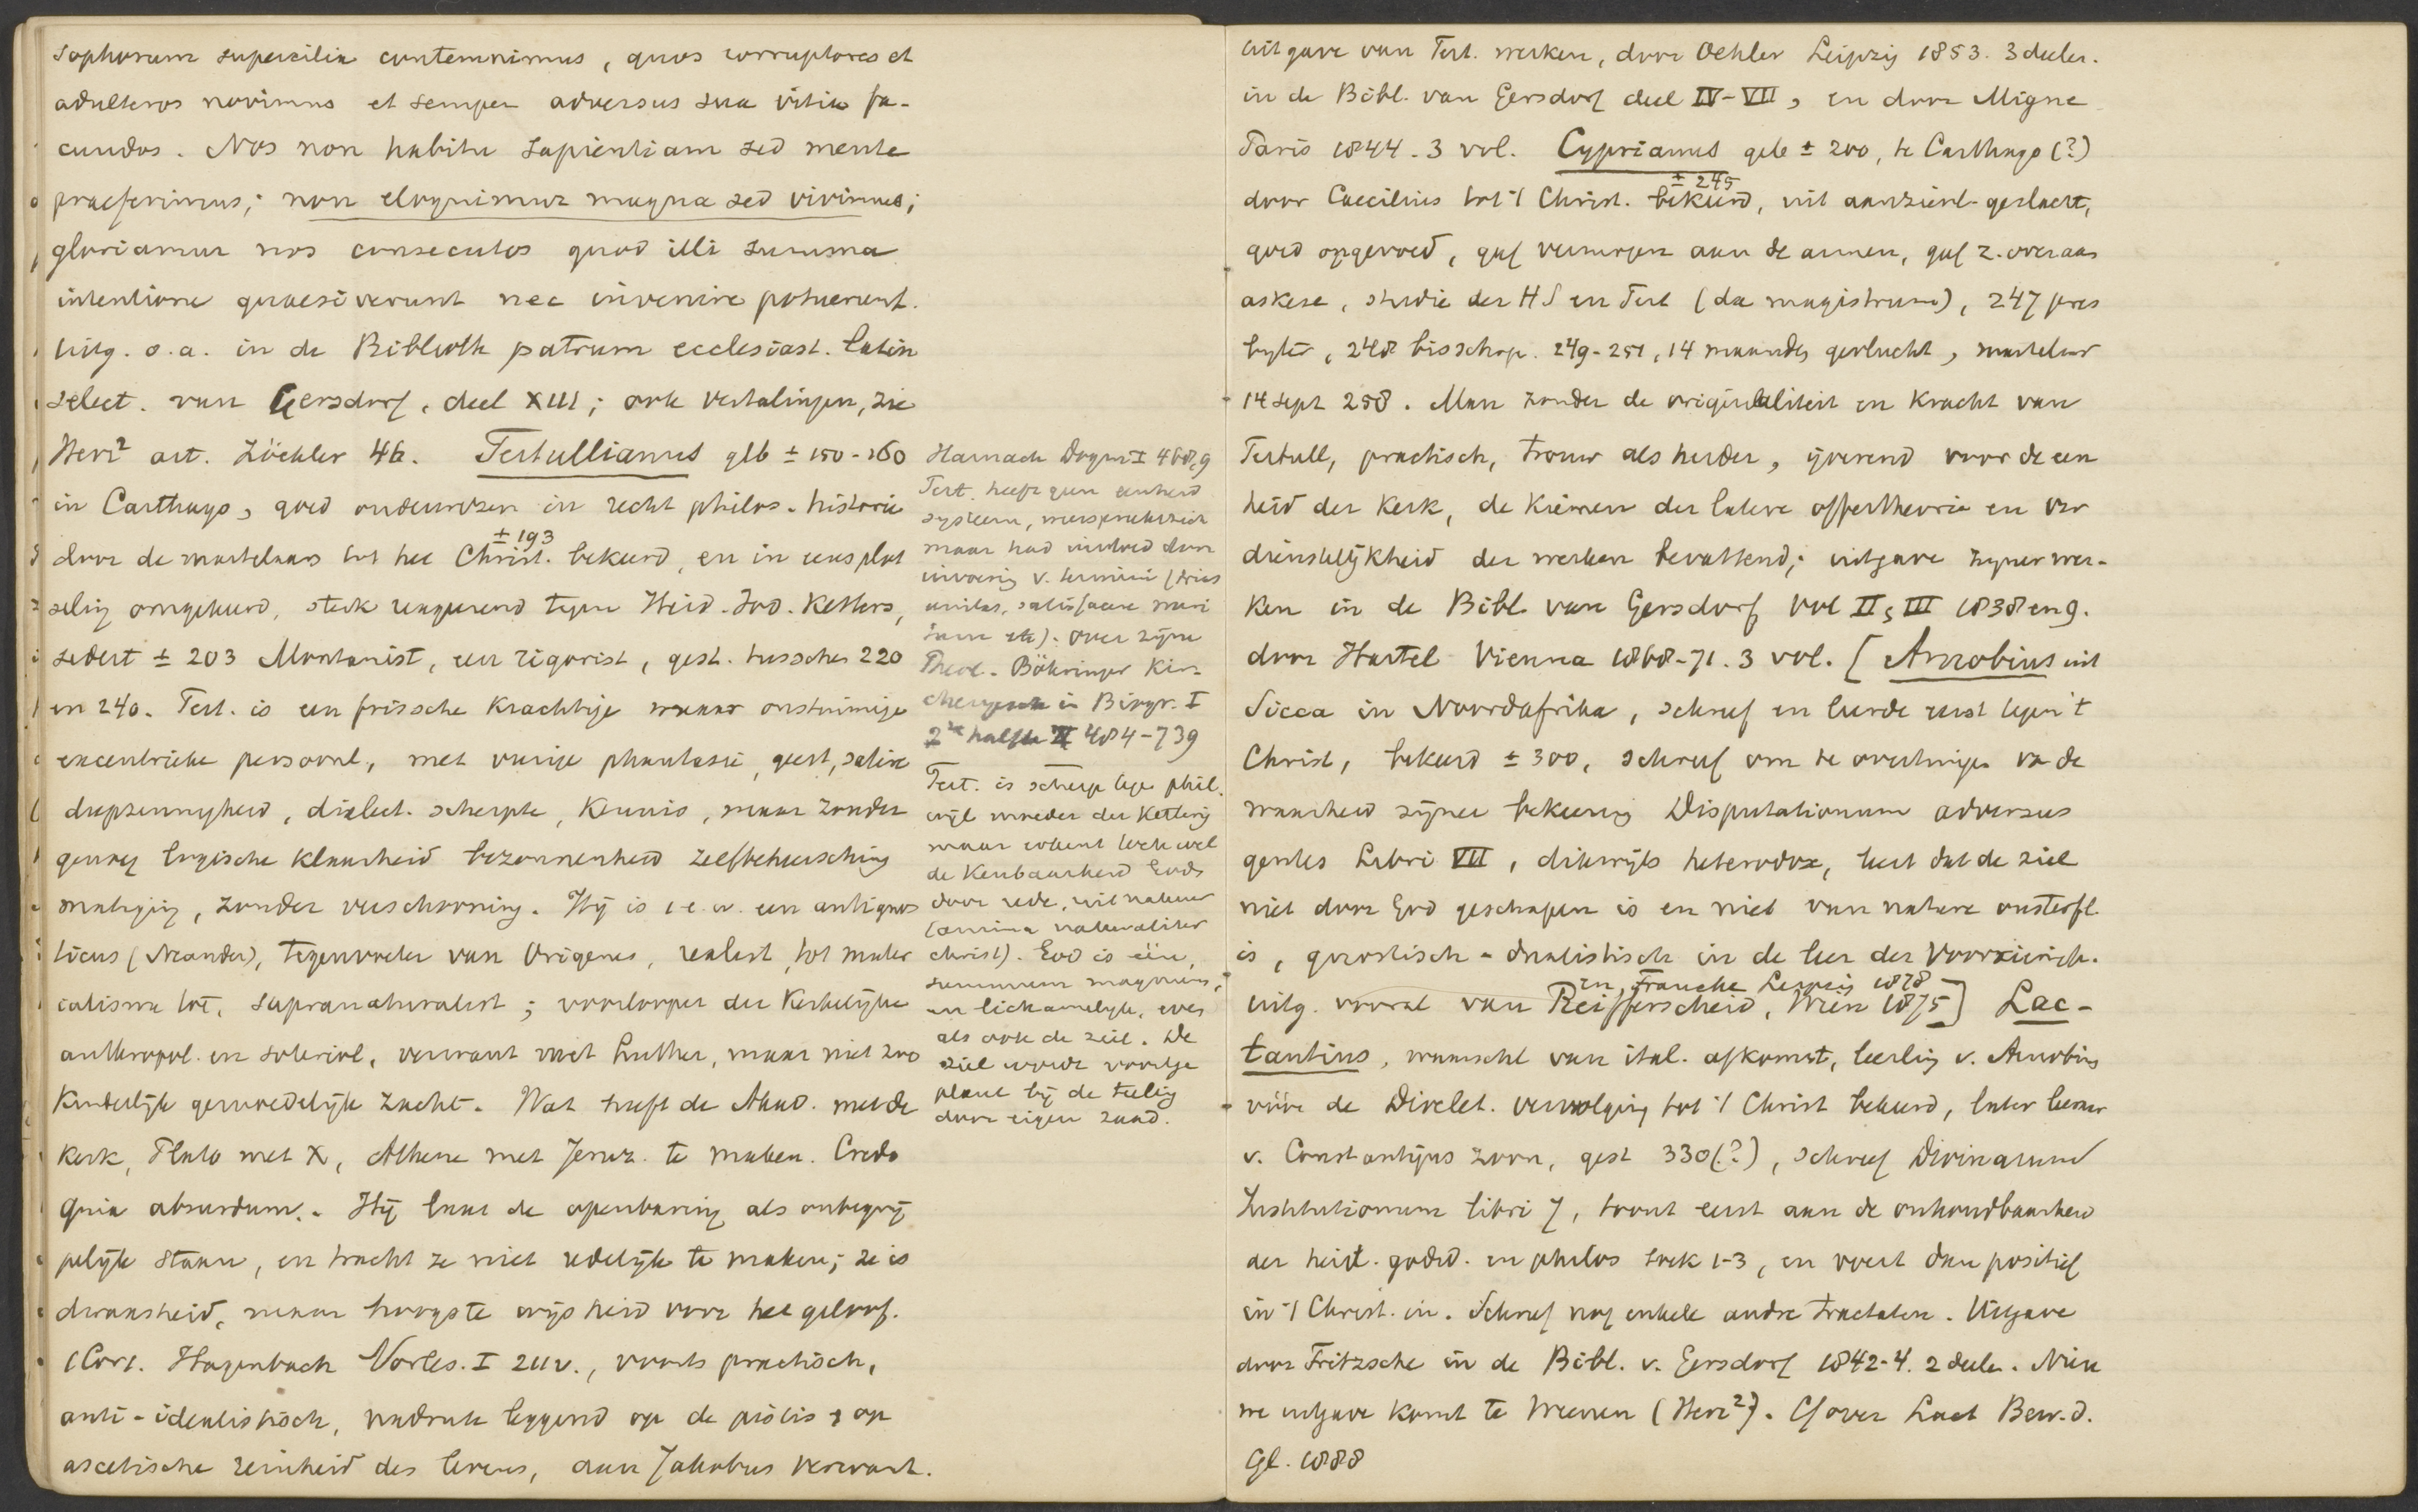 sophorum supercilia contemnimus, quos corruptores et
adulteros novimus et semper adversus sua vitia fa-
cundos. Nos non habitu sapientiam sed mente
praeferimus; non eloquimur magna sed vivimus;
gloriamur nos consecutos quod illi summa
intentione quaesiverunt nec invenire potuerunt.
Uitg. o.a. in de Biblioth patrum ecclesiast. Latin
select. van Gersdorf, deel XIII; ook vertalingen, zie
Herz² art. Zöckler 46. Tertullianus geb ± 150-160
in Carthago, goed onderwezen in recht philos. historie
± 193
door de martelaars tot het Christ. bekeerd, en in eens plot
selig omgekeerd, sterk reageerend tegen Heid. Jod. Ketters,
sedert ± 203 Montanist, een rigorist, gest. tusschen 220
en 240. Tert. is een frissche krachtige maar onstuimige
excentrieke persoonl., met vurige phantasie, geest, satire
diepzinnigheid, dialect. scherpte, kennis, maar zonder
genoeg logische klaarheid bezonnenheid zelfbeheersching
matiging, zonder verschooning. Hij is i.e.w. een antignos
ticus (Neander), tegenvoeter van Origenes, realist, tot mater
ialisme toe, supranaturalist; voorlooper der Kerkelijke
anthropol. en soteriol., verwant met Luther, maar niet zoo
Kinderlijk gemoedelijk zacht. Wat heeft de Akad. met de
Kerk, Plato met X, Athene met Jeruz. te maken. Credo
quia absurdum. Hij laat de openbaring als onbegrij
pelijk staan, en tracht ze niet redelijk te maken; ze is
dwaasheid, maar hoogste wijsheid voor het geloof.
1 Cor 1. Hagenbach Vorles. I 211v., voorts practisch,
anti-idealistisch, nadruk leggend op de pistis & op
ascetische reinheid des levens, aan Jakobus verwant.
Harnack Dogm I 468,9
Tert. heeft geen eenheid
systeem,
maar had invloed door
invoering v. termini (trias
unitas, satisfacere meri
tum etc). Over zijne
Theol. Böhringer Kir-
chengesch in Biogr. I
2de helfte II 484-739
Tert. is scherp tege phil.
wijl moeder der Ketterij
maar erkent toch wel
de Kenbaarheid Gods
door rede, uit natuur
(anima naturaliter
christ). God is één,
summum magnum,
en lichamelijk, even
als ook de ziel. De
ziel wordt voortge
plant bij de teeling
door eigen zaad.
uitgave van Tert. werken, door Oehler Leipzig 1853. 3 deelen.
in de Bibl. van Gersdorf deel IV-VII, en door Migne
Paris 1844. 3 vol. Cyprianus geb ± 200, te Carthago (?)
± 245
door Caecilius tot 't Christ. bekeerd, uit aanzienl. geslacht,
goed opgevoed, gaf vermogen aan de armen, gaf z. over aan
askese, studie der HS en Tert (da magistrum), 247 pres
byter, 248 bisschop. 249-251, 14 maanden gevlucht, martelaar
14 sept 258. Man zonder de originaliteit en Kracht van
Tertull, practisch, trouw als herder, ijverend voor de een
heid der Kerk, de Kiemen der latere offertheorie en ver
dienstelijkheid der werken bevattend; uitgave zijner wer-
ken in de Bibl. van Gersdorf vol II, III 1838 en 9.
door Hartel Vienna 1868-71. 3 vol. [Arnobius uit
Sicca in Noordafrika, schreef en leerde eerst tegen 't
Christ, bekeerd ± 300, schreef om te overtuigen va de
waarheid zijner bekeering Disputationum adversus
gentes Libri VII, dikwijls heterodox, leert dat de ziel
niet door God geschapen is en niet van nature onsterfl.
is, gnostisch-dualistisch in de leer der Voorzienigh.
en Francke Leipzig 1878
uitg. vooral van Reifferscheid, Wien 1875] Lac-
tantius, waarschl van ital. afkomst, leerling v. Arnobius
vóór de Dioclet. vervolging tot 't Christ bekeerd, later leeraar
v. Constantijns zoon, gest 330(?), schreef Divinarum
Institutionum libri 7, toont eerst aan de onhoudbaarheid
der heid. godsd. en philos boek 1-3, en voert dan positief
in 't Christ. in. Schreef nog enkele andre tractaten. Uitgave
door Fritzsche in de Bibl. v. Gersdorf 1842-4. 2 deelen. Nieu
we uitgave komt te Weenen (Herz²). Cf over Lact Bew. d.
Gl. 1888